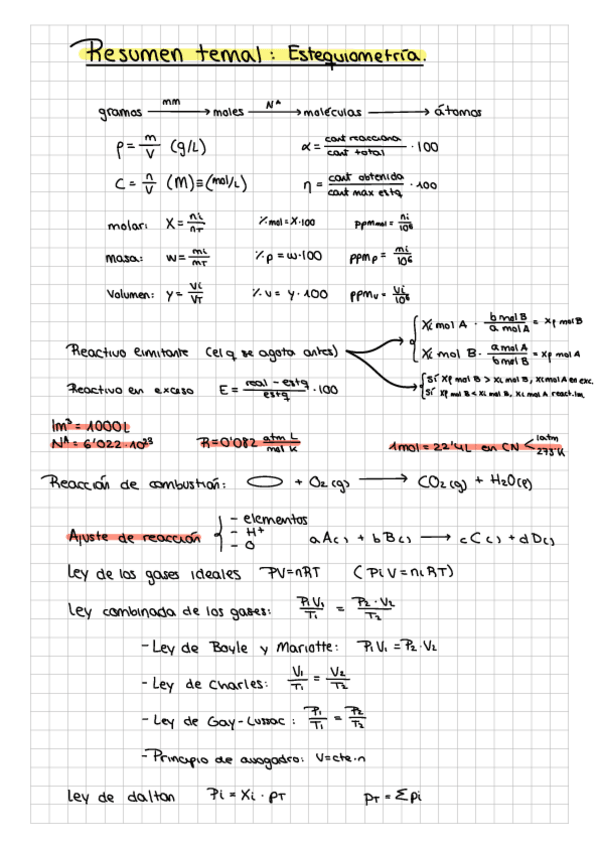 Resumen tema1: Estequiometría.
gramos —mm→ moles —NA→ moléculas → átomos
ρ = m/V (g/L)   α = cant reacciona/cant total · 100
C = n/V (M) ≡ (mol/L)   η = cant obtenida/cant max estq · 100
molar: X = ni/nT   % mol = X·100   ppm mol = ni/10⁶
masa: w = mi/mT   % p = w·100   ppm p = mi/10⁶
Volumen: y = Vi/VT   % v = y·100   ppm v = Vi/10⁶
Xi mol A · b mol B/a mol A = Xp mol B
Reactivo limitante (el q se agota antes)   Xi mol B · a mol A/b mol B = Xp mol A
Si Xp mol B > Xi mol B, Xi mol A en exc.
Reactivo en exceso E = real - estq/estq · 100   Si Xp mol B < Xi mol B, Xi mol A react.lim
1m³ = 1000L
NA = 6'022·10²³   R = 0'082 atm L/mol K   1mol = 22'4L en CN < 1atm 273'K
Reacción de combustión: + O₂(g) → CO₂(g) + H₂O(l)
Ajuste de reacción { - elementos - H⁺ - O   aA( ) + bB( ) → cC( ) + dD( )
Ley de los gases ideales PV=nRT (PiV=niRT)
Ley combinada de los gases: P₁V₁/T₁ = P₂·V₂/T₂
- Ley de Boyle y Mariotte: P₁V₁ = P₂·V₂
- Ley de Charles: V₁/T₁ = V₂/T₂
- Ley de Gay-Lussac: P₁/T₁ = P₂/T₂
- Principio de avogadro: V=cte·n
Ley de dalton Pi = Xi · PT   PT = Σpi